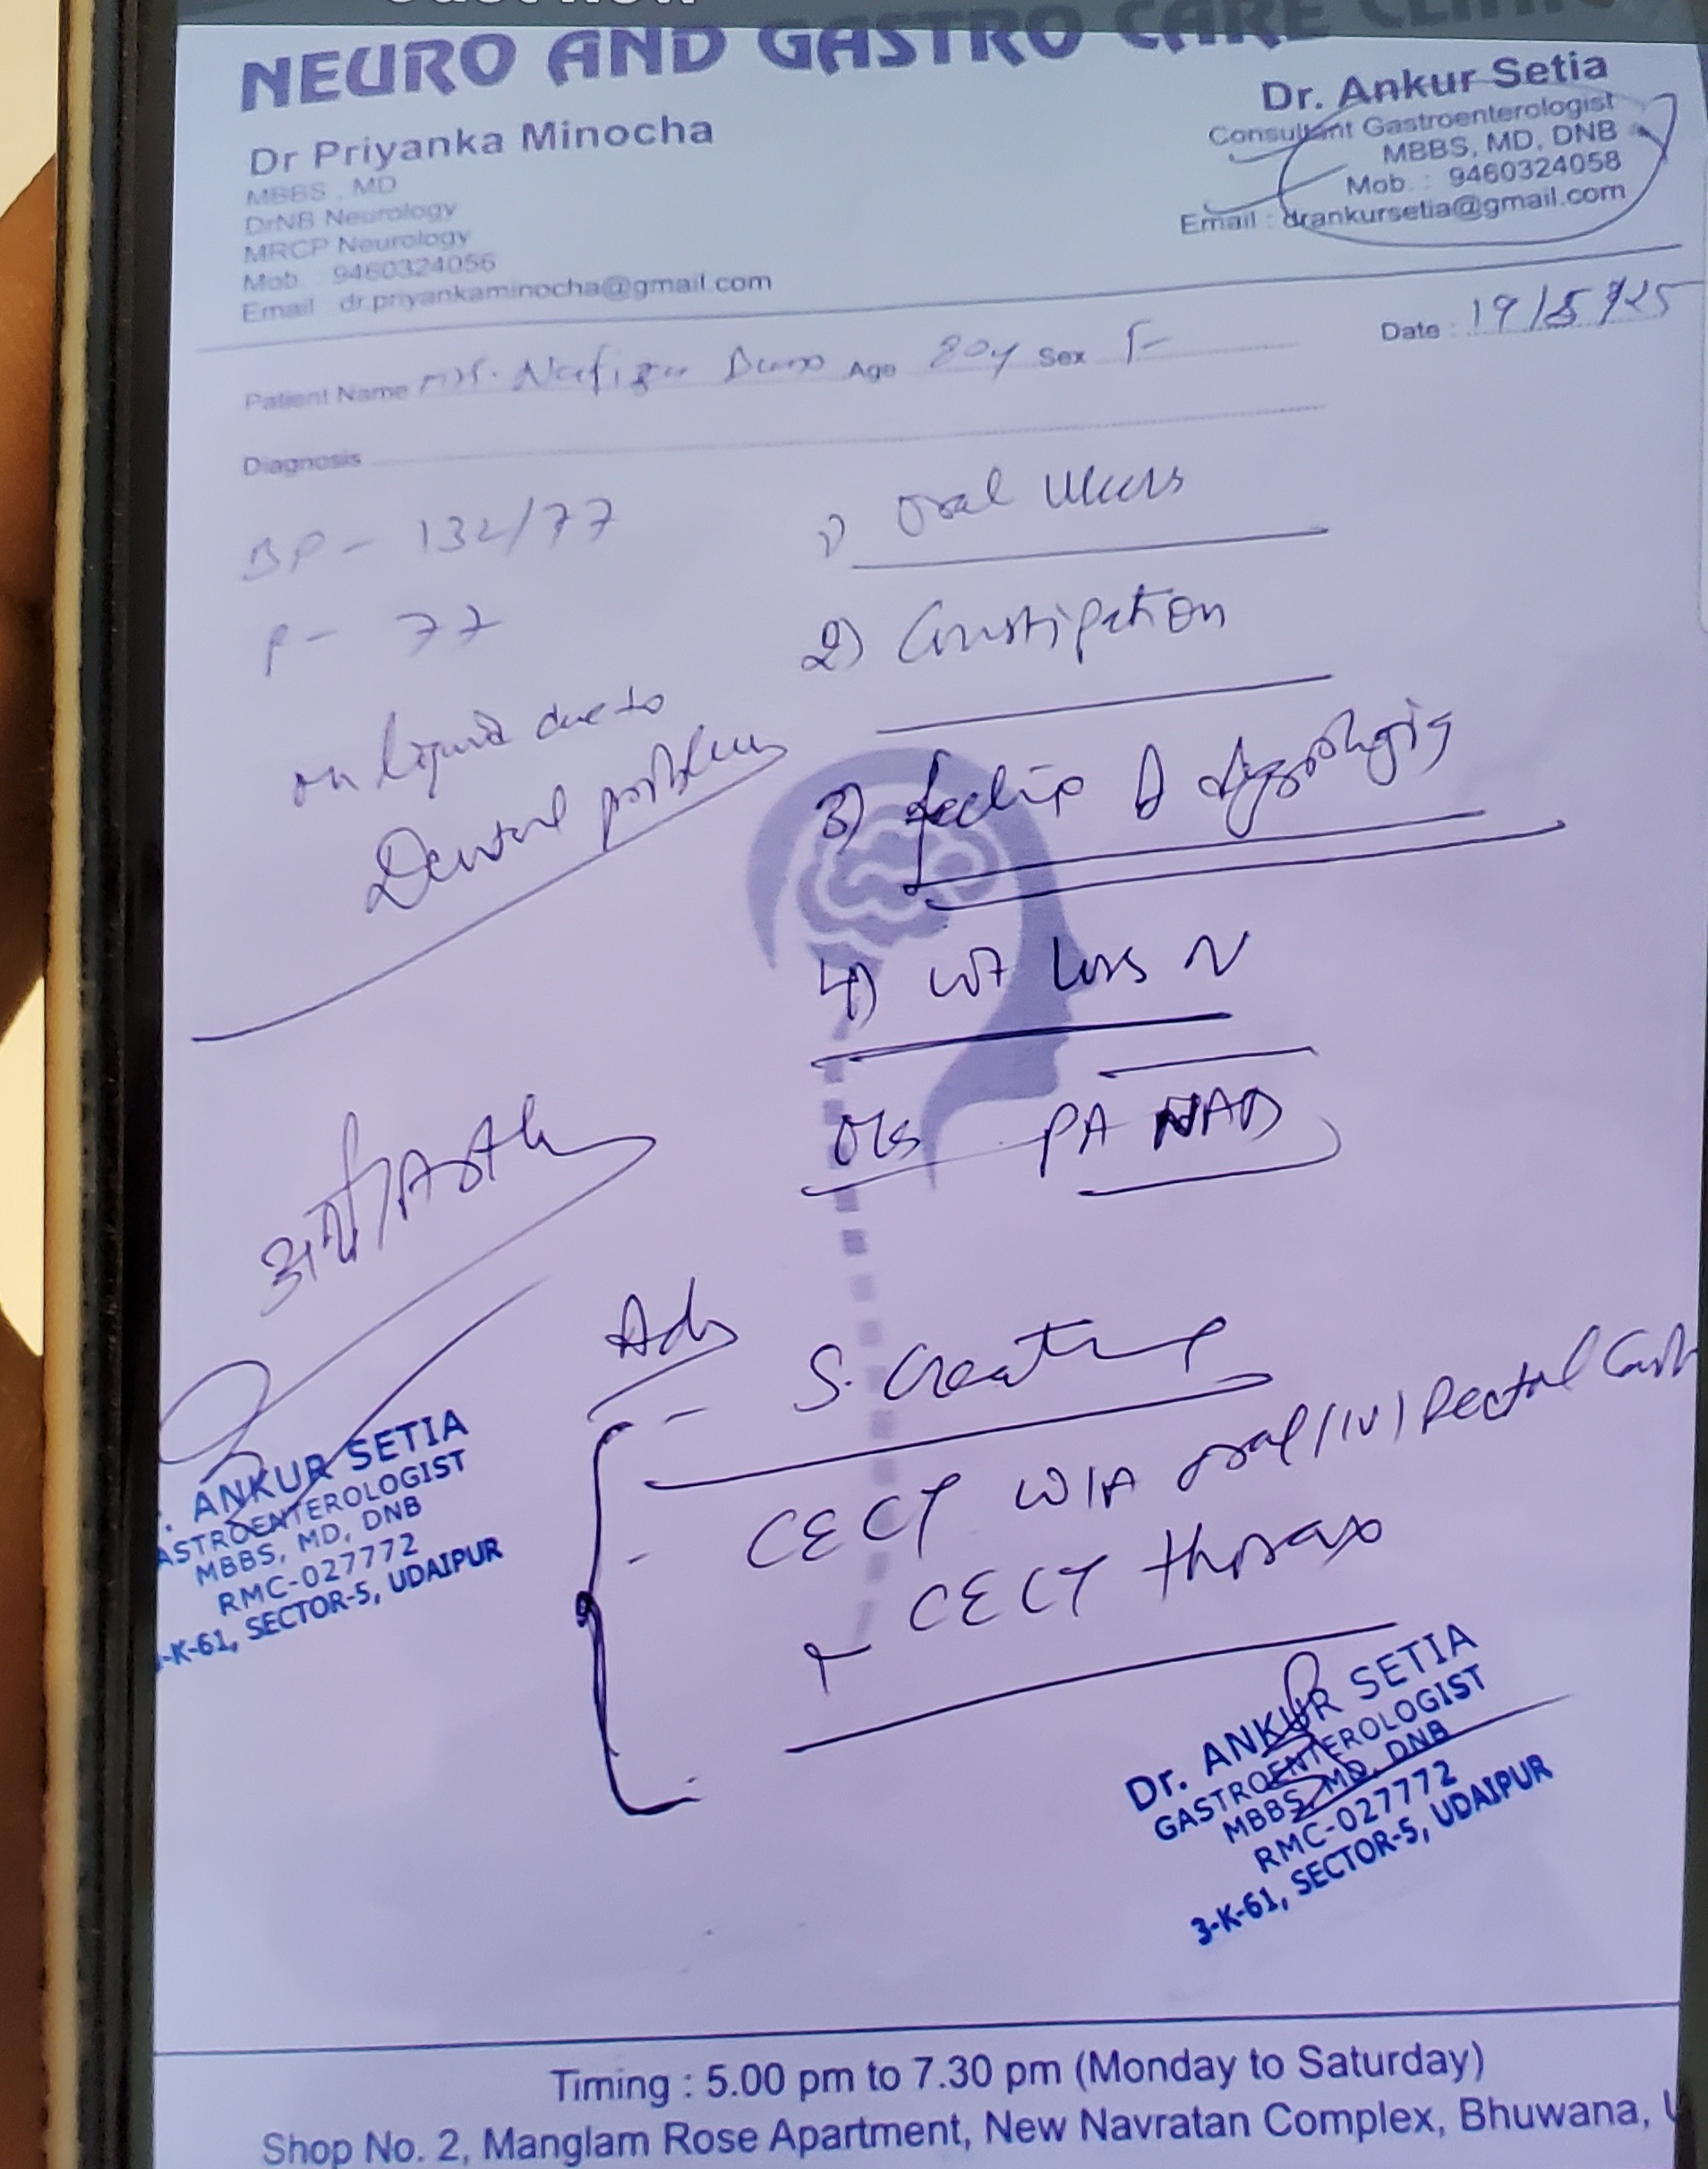 NEURO AND GASTRO CARE CLINIC
Dr Priyanka Minocha
MBBS, MD
DrNB Neurology
MRCP Neurology
Mob : 9460324056
Email : dr.priyankaminocha@gmail.com
Dr. Ankur Setia
Consultant Gastroenterologist
MBBS, MD, DNB
Mob. : 9460324058
Email : drankursetia@gmail.com
Date : 19/5/25
Patient Name Age 80y Sex F
Diagnosis
BP - 132/77
P - 77
on liquid due to
Dental problem
1) oral ulcers
2) Constipation
3) feeling of dysphagia
4) wt loss N
PA NAD
Adv
- S. Creatinine
- CECT W/A oral/IV/Rectal
CECT thorax
ANKUR SETIA
ASTROENTEROLOGIST
MBBS, MD, DNB
RMC-027772
-K-61, SECTOR-5, UDAIPUR
Dr. ANKUR SETIA
GASTROENTEROLOGIST
MBBS, MD, DNB
RMC-027772
3-K-61, SECTOR-5, UDAIPUR
Timing : 5.00 pm to 7.30 pm (Monday to Saturday)
Shop No. 2, Manglam Rose Apartment, New Navratan Complex, Bhuwana,